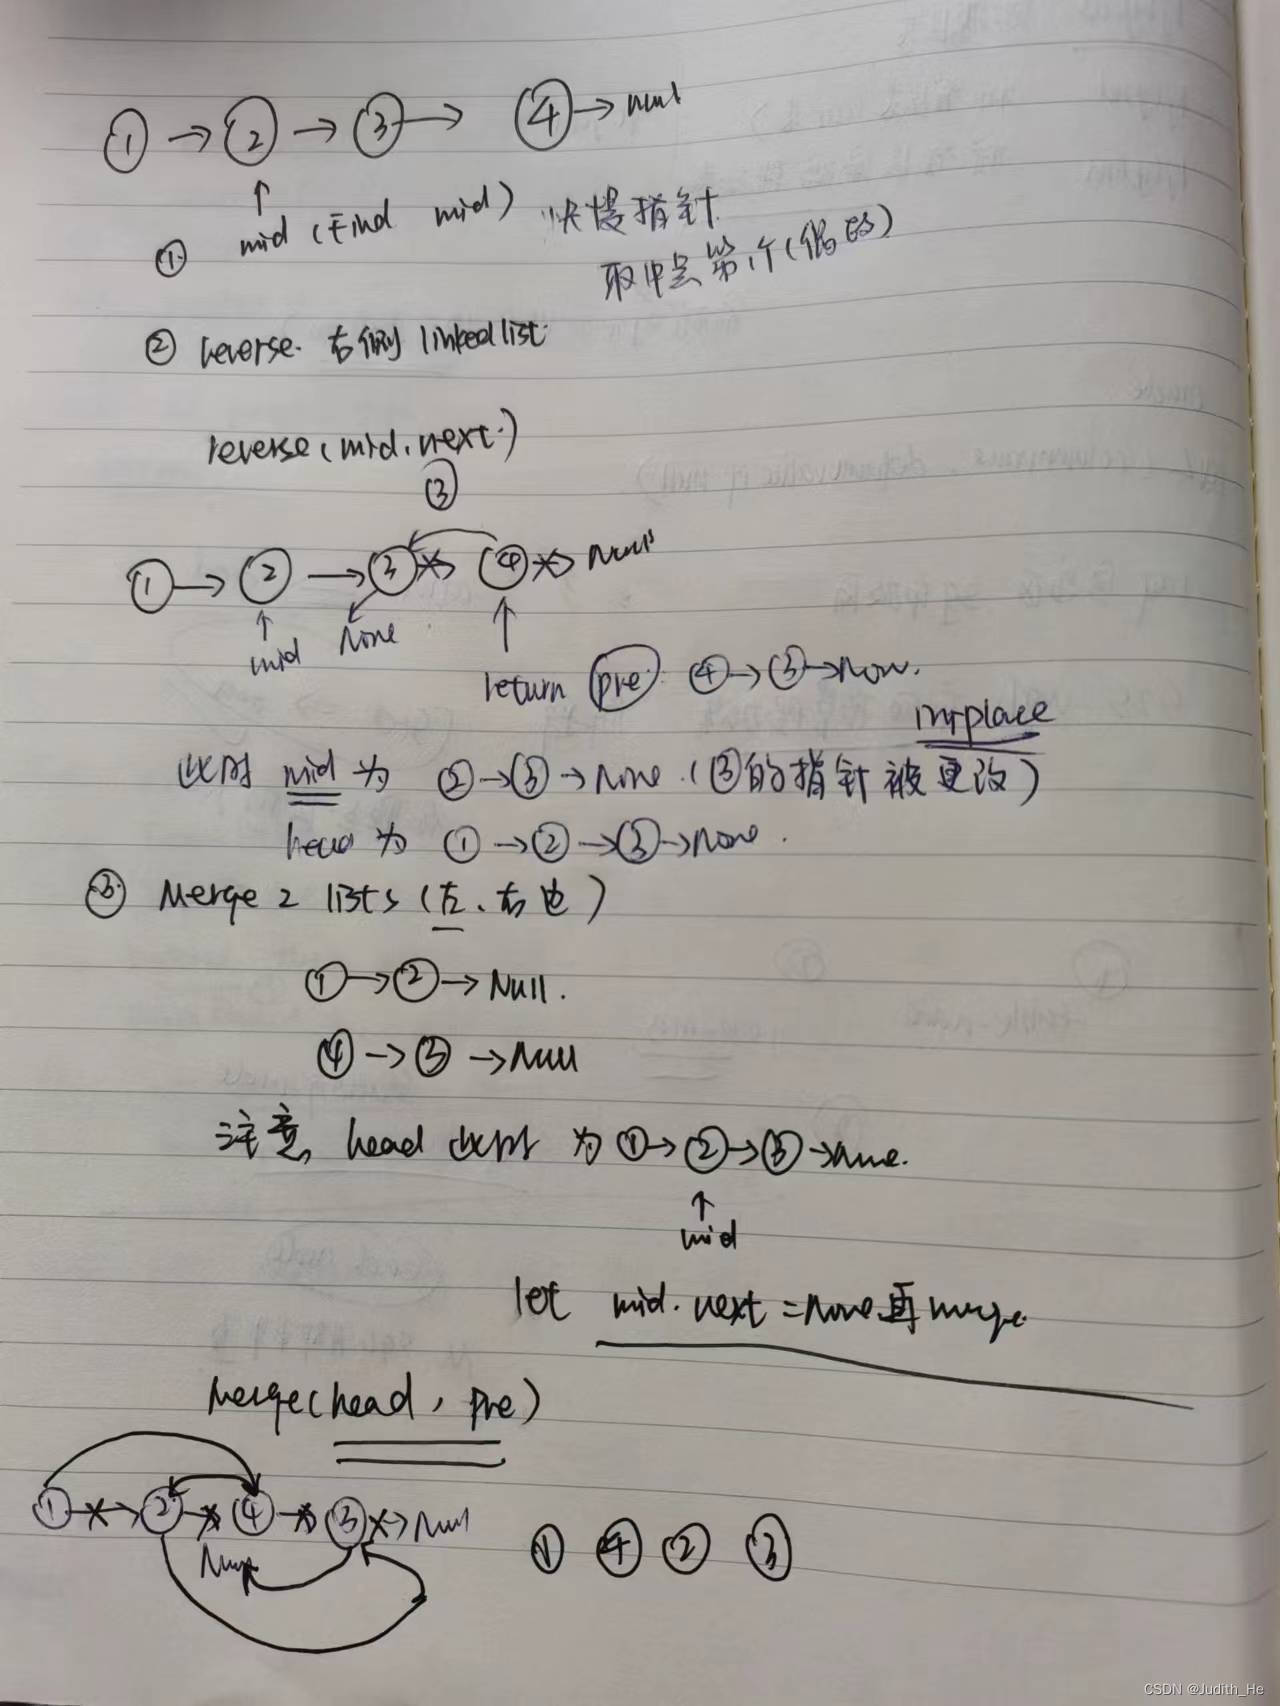 ① → ② → ③ → ④ → null
① mid (Find mid) 快慢指针
取中点第1个(偶的)
② reverse. 右侧 linkedlist.
reverse(mid.next.)
③
① → ② → ③ → ④ → Null
mid None
return pre. ④ → ③ → None.
in-place
此时 mid 为 ② → ③ → None. (③的指针被更改)
head 为 ① → ② → ③ → None.
③ Merge 2 lists (左、右边)
① → ② → Null.
④ → ③ → Null
注意, head 此时 为 ① → ② → ③ → None.
mid
let mid.next = None 再 merge.
Merge(head, pre)
① → ② → ④ → ③ → Null
① ④ ② ③
CSDN @Judith_He